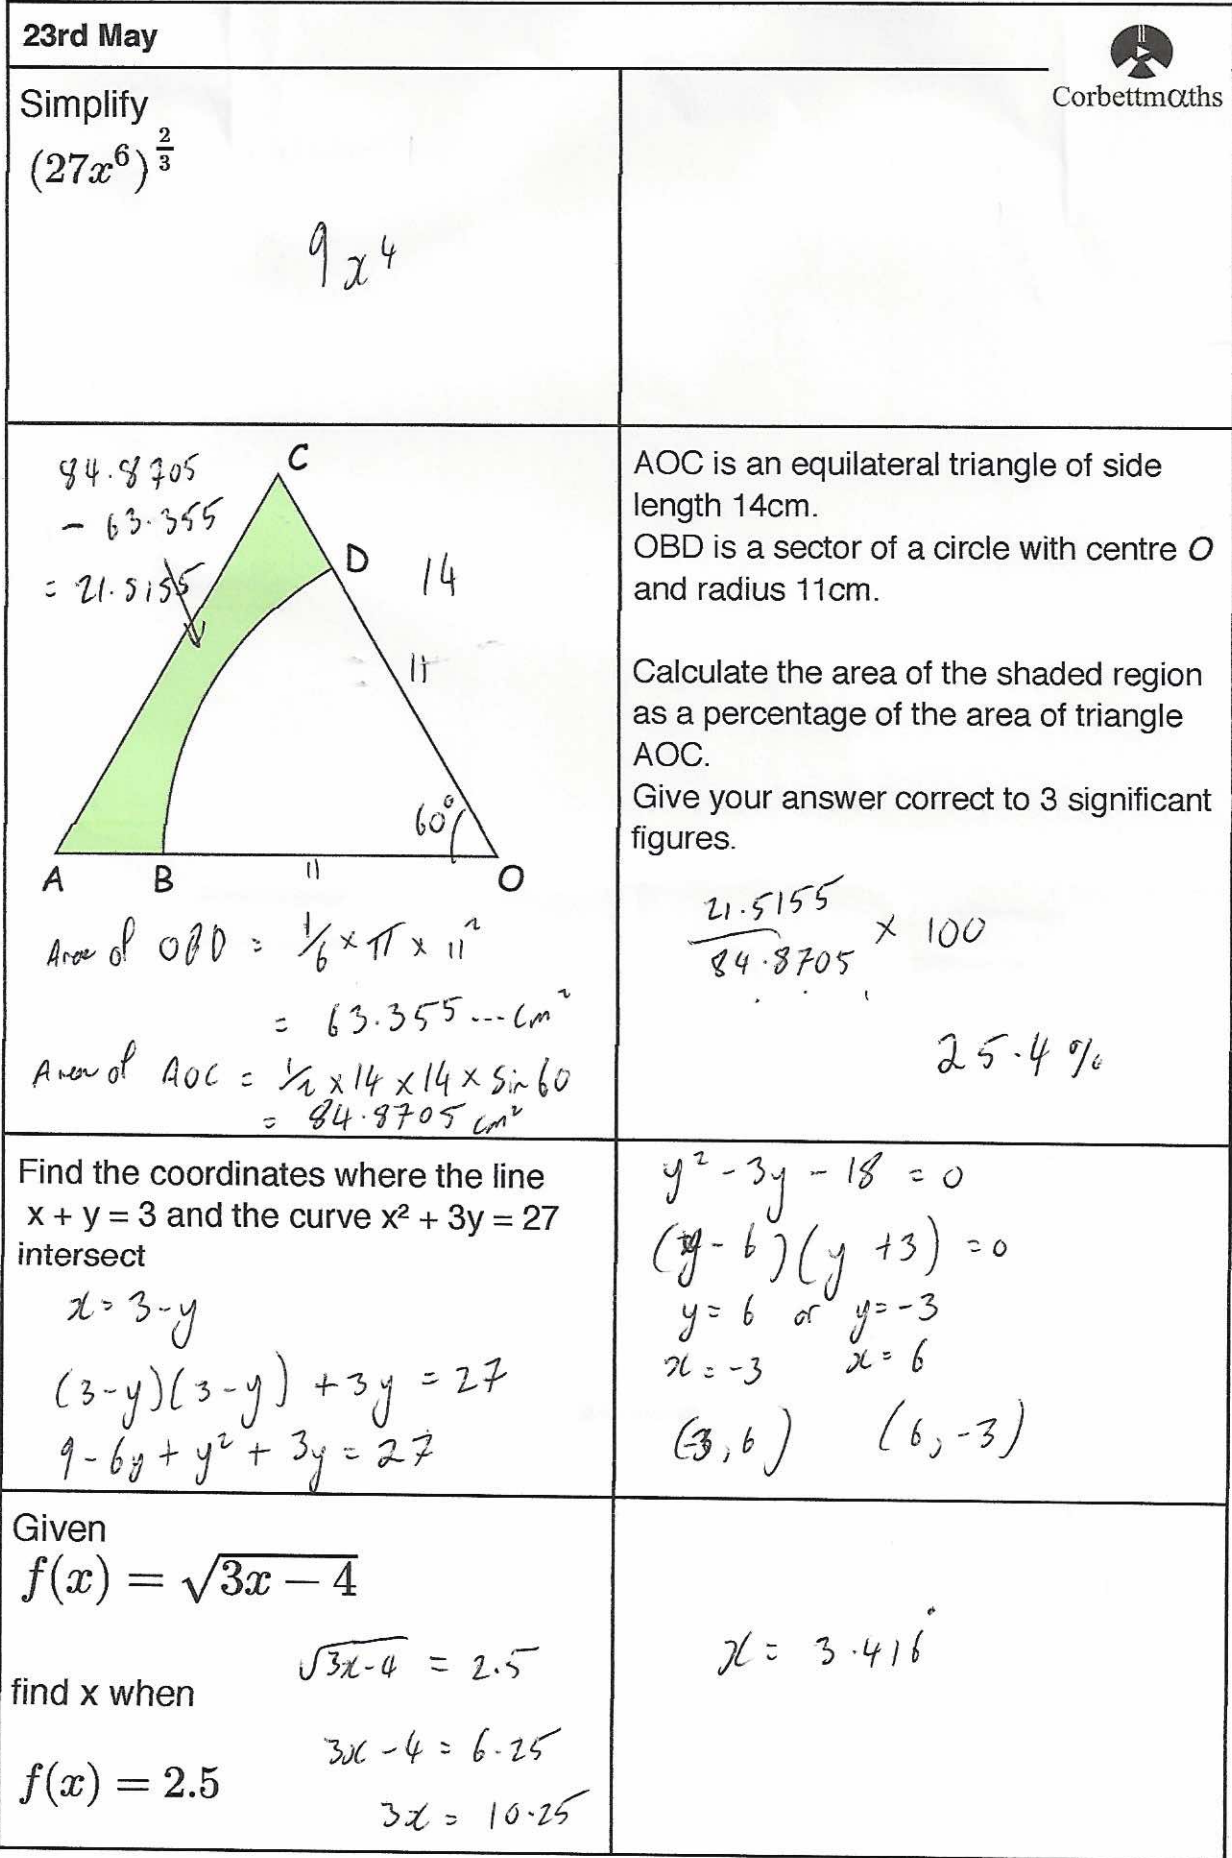 23rd May
Corbettmαths
Simplify
(27x⁶)^(2/3)
9x⁴
84.8705
- 63.355
= 21.5155
C
D
14
11
60°
A
B
11
O
Area of OBD = 1/6 × π × 11²
= 63.355...cm²
Area of AOC = 1/2 × 14 × 14 × Sin 60
= 84.8705 cm²
AOC is an equilateral triangle of side
length 14cm.
OBD is a sector of a circle with centre O
and radius 11cm.
Calculate the area of the shaded region
as a percentage of the area of triangle
AOC.
Give your answer correct to 3 significant
figures.
21.5155/84.8705 × 100
25.4%
Find the coordinates where the line
x + y = 3 and the curve x² + 3y = 27
intersect
x = 3-y
(3-y)(3-y) + 3y = 27
9 - 6y + y² + 3y = 27
y² - 3y - 18 = 0
(y - 6)(y + 3) = 0
y = 6 or y = -3
x = -3 x = 6
(-3, 6) (6, -3)
Given
f(x) = √(3x − 4)
find x when
f(x) = 2.5
√(3x-4) = 2.5
3x - 4 = 6.25
3x = 10.25
x = 3.416̇